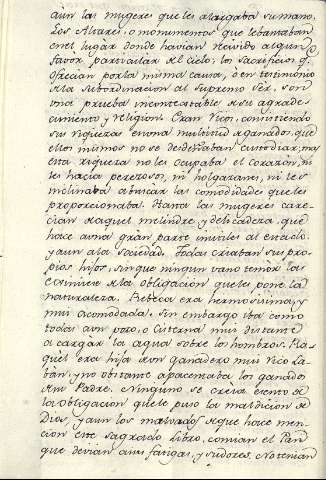 aun las mugeres que les alargaba su mano.
Los Altares, o monumentos que lebantaban
en el lugar donde havian recivido algun
favor particular del Cielo; los sacrificios q.
ofrecian por la misma causa, ô en testimonio
de la subordinacion al Supremo Ser, son
una prueba incontestable de su agrade-
cimiento y religion. Eran ricos, consistiendo
sus riquezas en una multitud de ganados, que
ellos mismos no se desdeñaban custodiar, mas
esta riqueza no les ocupaba el corazon, ni
les hacia perezosos, ni holgazanes, ni les
inclinaba a buscar las comodidades que les
proporcionaba. Hasta las mugeres care-
cian de aquel melindre, y delicadeza, que
hace a una gran parte inutiles al estado
y aun a la sociedad. Todas criaban sus pro-
pios hijos, sin que ningun vano temor las
eximiese de la obligacion que les pone la
naturaleza. Rebeca era hermosisima, y
mui acomodada. Sin embargo iba como
todas a un pozo, o cisterna mui distante
a cargar la agua sobre los hombros. Ra-
quel era hija de un ganadero mui rico La-
ban, y no obstante apacentaba los ganados
de su Padre. Ninguno se creia exento de
la obligacion que le puso la maldicion de
Dios, y aun los malvados de que hace men-
cion este sagrado Libro, comian el Pan
que devian a sus fatigas, y sudores. No tenian